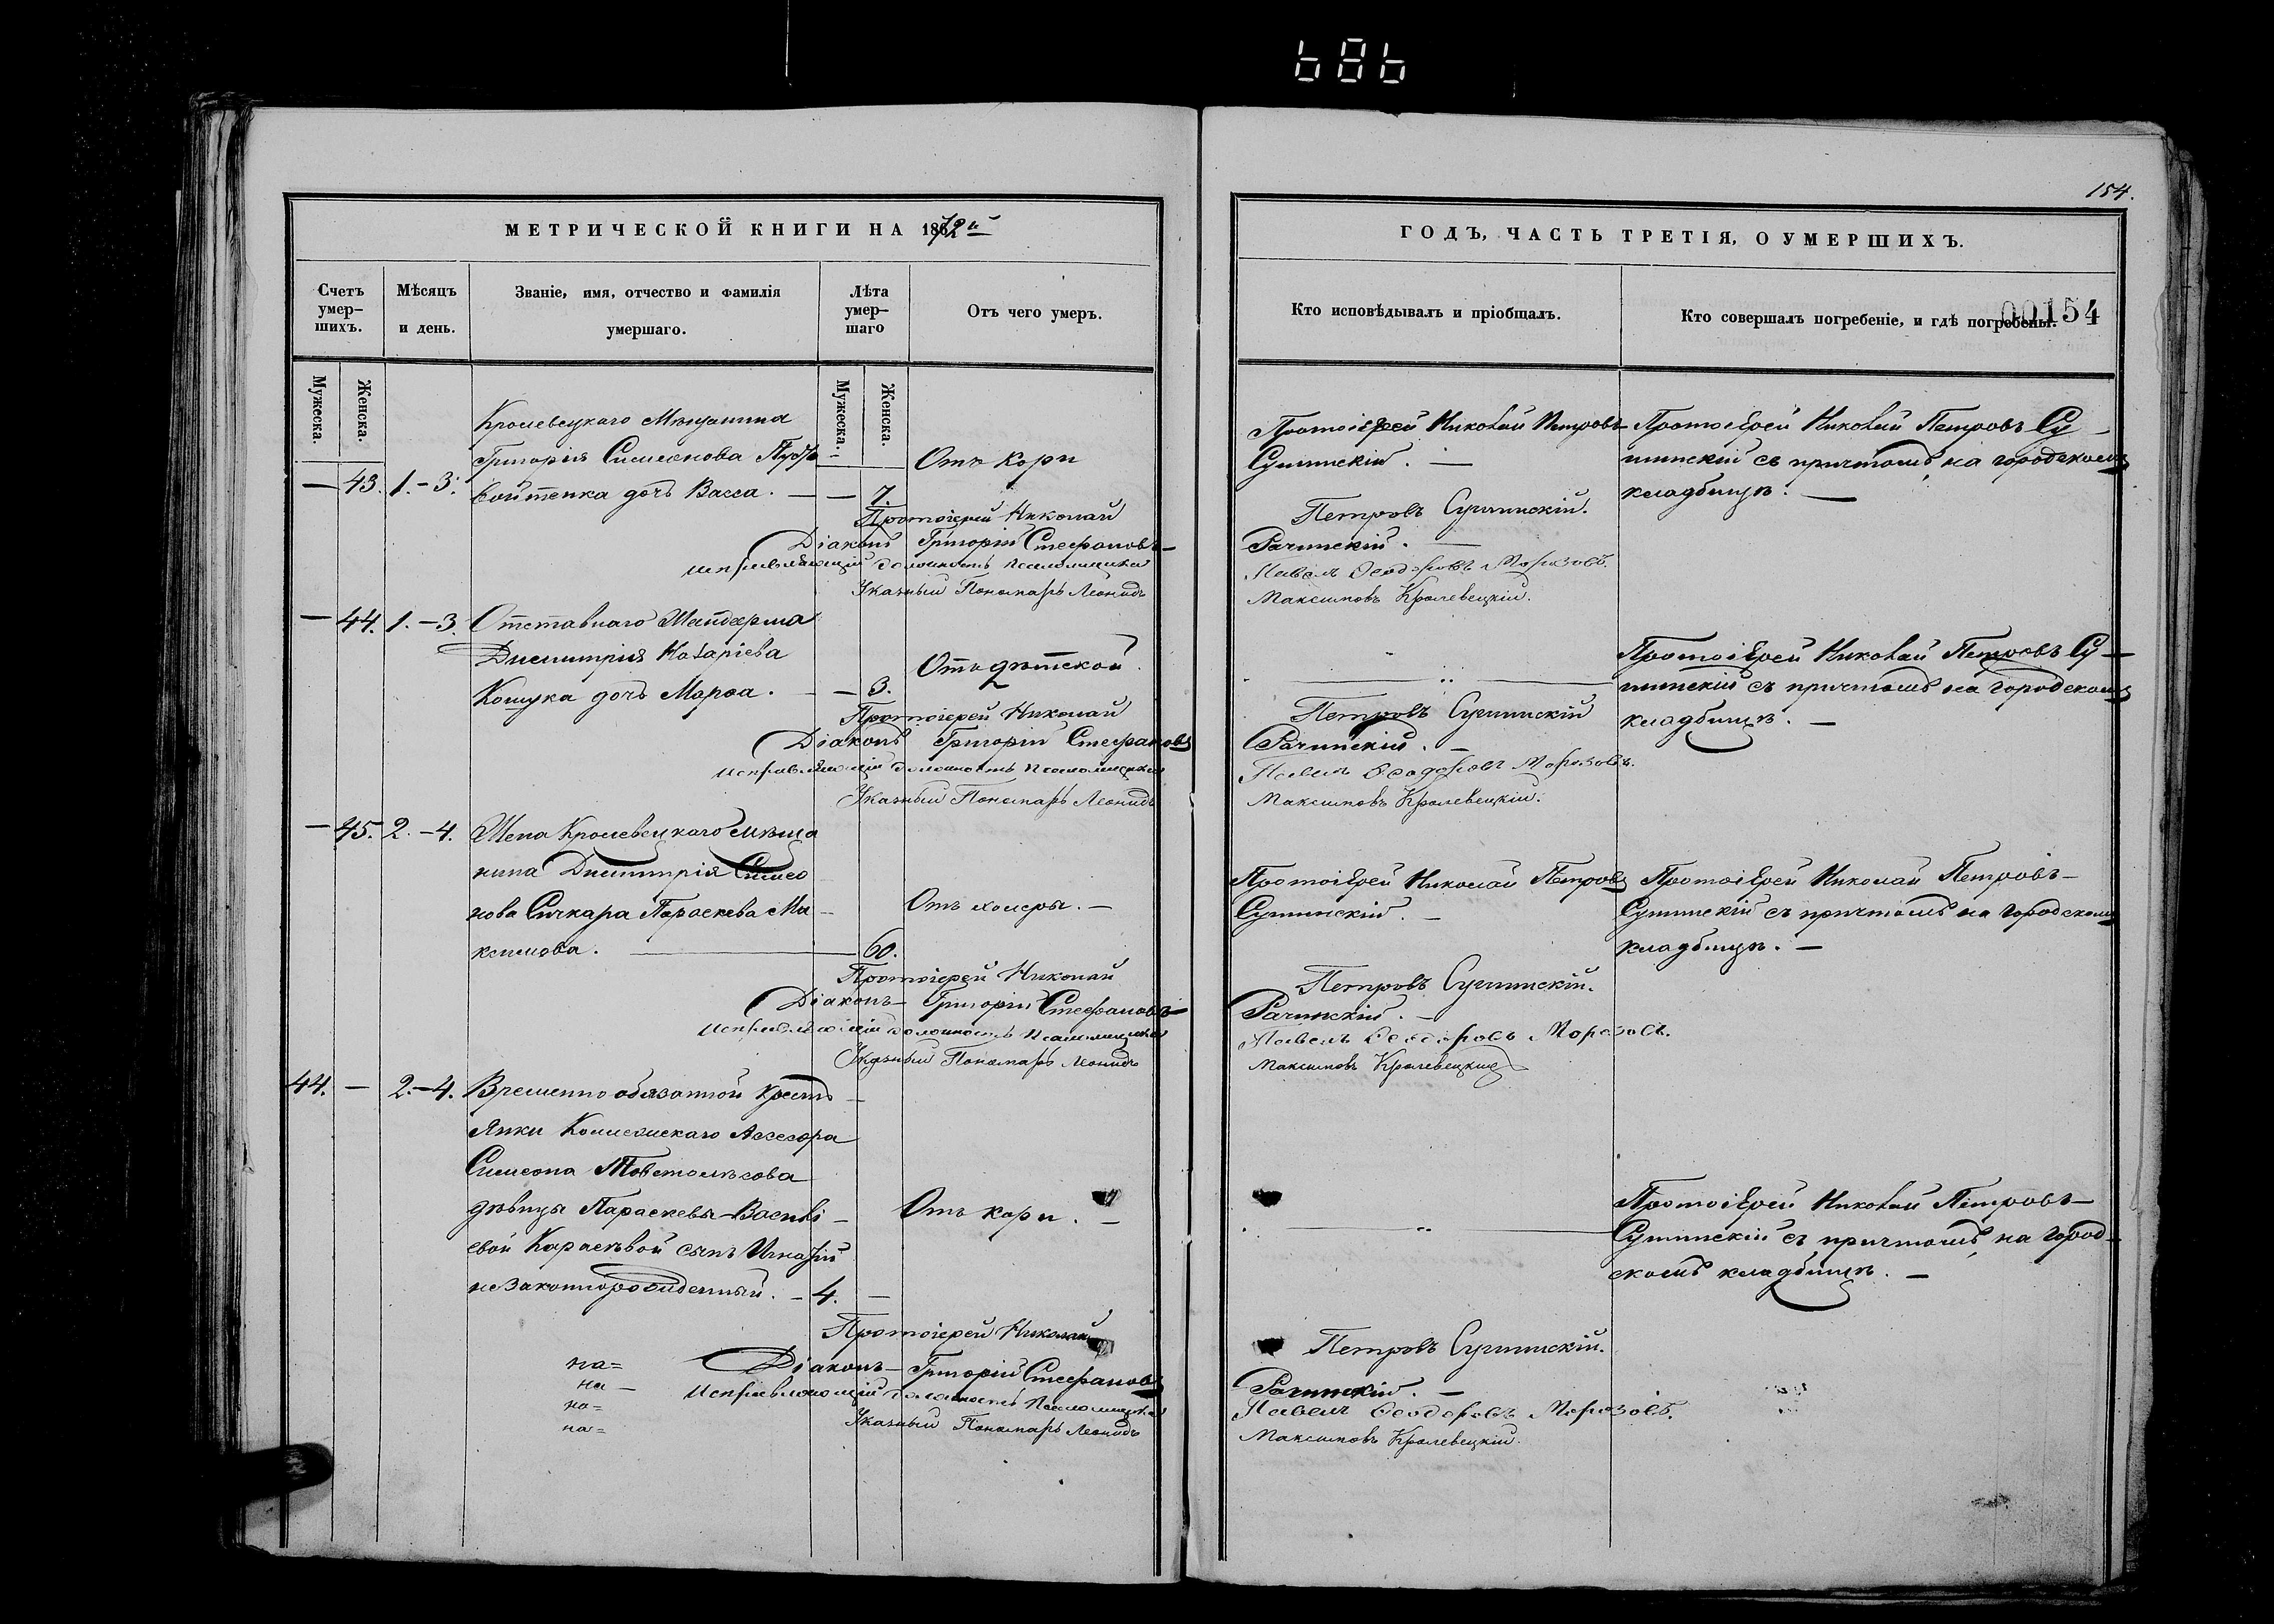 686
154.
МЕТРИЧЕСКОЙ КНИГИ НА 1872й
ГОДЪ, ЧАСТЬ ТРЕТІЯ, О УМЕРШИХЪ.
00154
Счетъ умер-
шихъ.
Мѣсяцъ
и день.
Званіе, имя, отчество и фамилія
умершаго.
Лѣта
умер-
шаго
Отъ чего умеръ.
Кто исповѣдывалъ и пріобщалъ.
Кто совершалъ погребеніе, и гдѣ погребены.
Мужеска.
Женска.
Мужеска.
Женска.
Кролевецкаго Мѣщанина
Григорія Симеонова
— 43. 1.—3. дочь Васса. — — 7.
Отъ кори
Протоіерей Николай Петровъ
Сушинскій. —
Протоіерей Николай Петровъ Су-
шинскій съ причтомъ, на городскомъ
кладбищѣ. —
Протоіерей Николай Петровъ Сушинскій.
Діаконъ Григорій Стефановъ Рачинскій. —
Исправляющій должность Псаломщика Павелъ Ѳеодоровъ Морозовъ.
Указный Пономарь Леонидъ Максимовъ Кролевецкій.
— 44. 1.—3. Отставнаго
Димитрія Назаріева
дочь Марѳа. — — 3.
Отъ дѣтской.
Протоіерей Николай Петровъ Су-
шинскій съ причтомъ на городскомъ
кладбищѣ. —
Протоіерей Николай Петровъ Сушинскій
Діаконъ Григорій Стефановъ Рачинскій. —
Исправляющій должность Псаломщика Павелъ Ѳеодоровъ Морозовъ.
Указный Пономарь Леонидъ Максимовъ Кролевецкій.
— 45. 2.—4. Жена Кролевецкаго мѣща
нина Димитрія Симео
нова Сичкара Параскева Ма
ксимова. — 60.
Отъ холеры. —
Протоіерей Николай Петровъ
Сушинскій. —
Протоіерей Николай Петровъ
Сушинскій съ причтомъ на городскомъ
кладбищѣ. —
Протоіерей Николай Петровъ Сушинскій.
Діаконъ Григорій Стефановъ Рачинскій. —
Исправляющій должность Псаломщика Павелъ Ѳеодоровъ Морозовъ.
Указный Пономарь Леонидъ Максимовъ Кролевецкій
44. — 2.—4. Временно обязанной крестъ
янки Коллежскаго Ассесора
Симеона Товстолѣсова
дѣвицы Параскевы Василі
евой сынъ Игнатій
незаконнорожденный. — 4. —
Отъ кори. —
Протоіерей Николай Петровъ
Сушинскій съ причтомъ, на город-
скомъ кладбищѣ. —
Протоіерей Николай Петровъ Сушинскій.
на= Діаконъ Григорій Стефановъ Рачинскій. —
на— Исправляющій должность Псаломщика Павелъ Ѳеодоровъ Морозовъ.
на= Указный Пономарь Леонидъ Максимовъ Кролевецкій.
на=